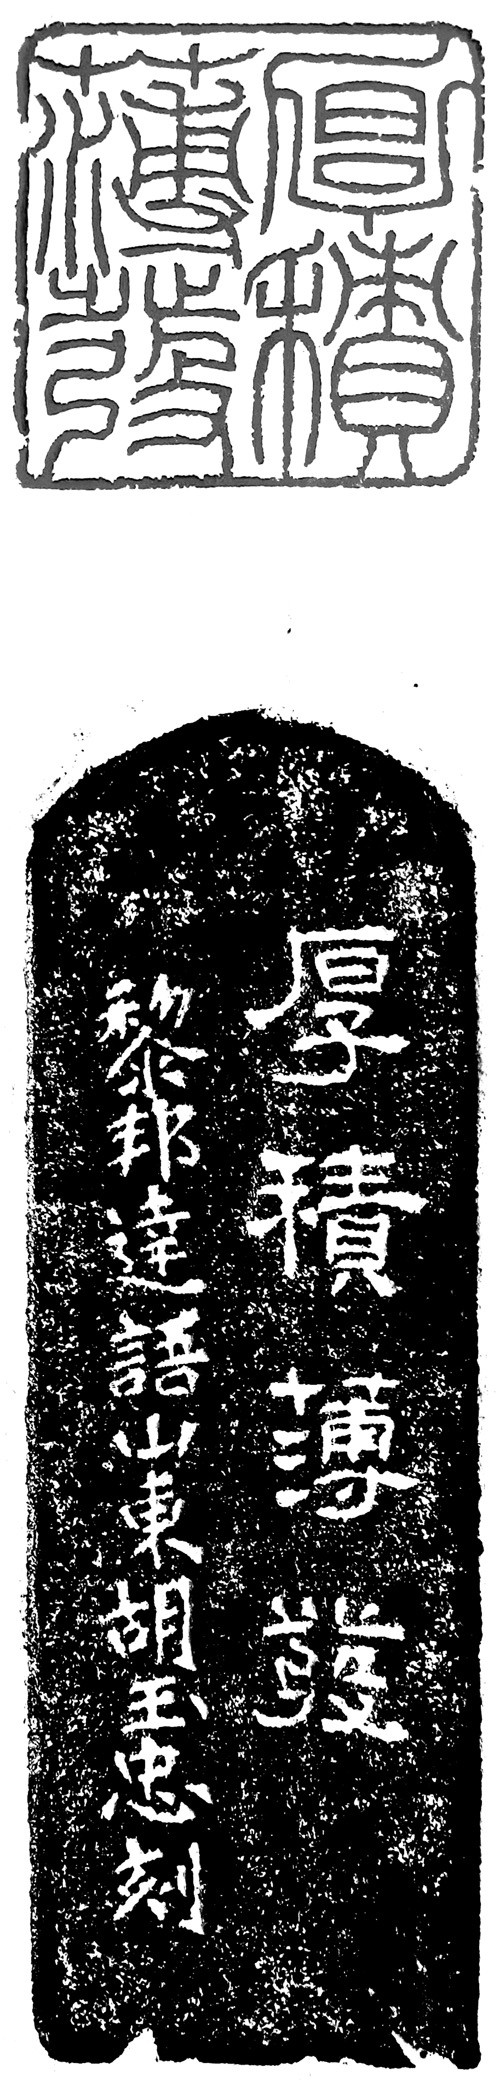 厚積
薄發
厚積薄發
黎邦達語山東胡玉忠刻